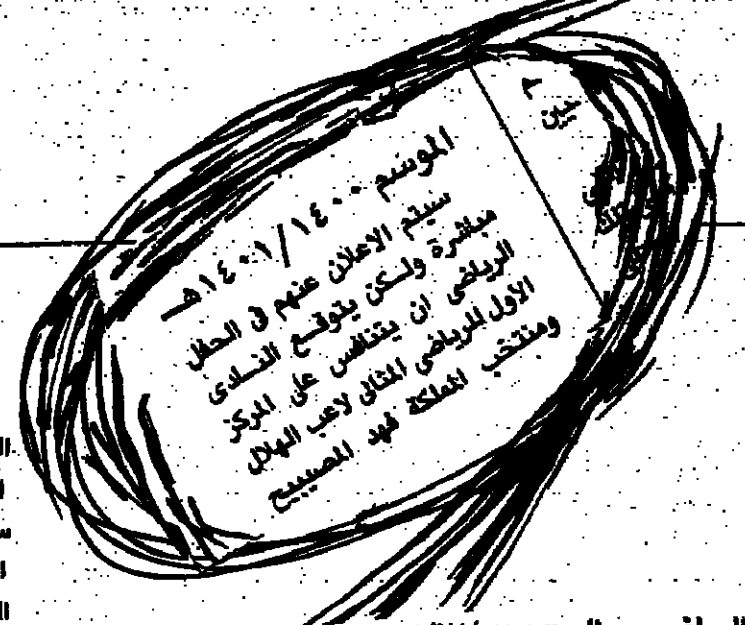 الموسم ١٤٠١/١٤٠٠هـ
سيتم الاعلان عنهم في الحفل
مباشرة ولكن يتوقع النادى
الرياضى ان يتنافس على المركز
الأول للرياضي المثالى لاعب الهلال
ومنتخب المملكة فهد المصيبيح